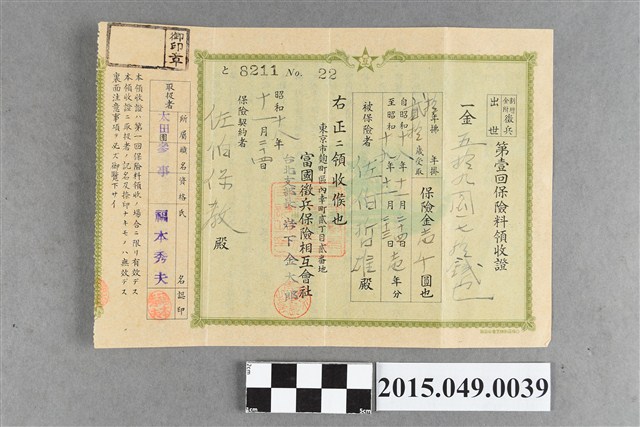 と 8211 No. 22
新種
金附
徴兵
出世
第壹回保險料領收證
一金五拾九圓七拾錢也
年拂 年掛
歲受取
保險金壱千圓也
自昭和十八年十一月二十四日
至昭和十九年十一月二十三日
壱年分
被保險者 佐伯哲雄殿
右正ニ領收候也
東京市麹町區內幸町貳丁目貳番地
富國徵兵保險相互會社
岩下金太郎
昭和十八年
十一月二十四日
保險契約者
佐伯保教殿
御印章
取扱者
所屬職名資格氏名認印
太田團參事 福本秀夫
本領收證ハ第一回保險料領收ノ場合ニ限リ有效デス
本領收證ニ取扱者ノ記名及捺印ナキモノハ無效デス
裏面注意事項ヲ必ズ御覽下サイ
5cm
2015.049.0039